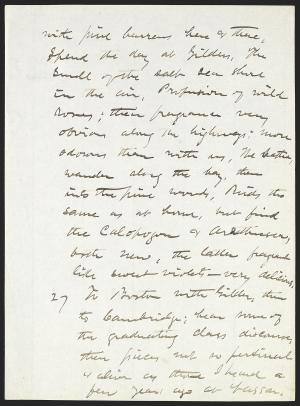 with pine barrens here & there,
Spend the day at Gilders. The
smell of the salt sea shore
in the air. Profusion of wild
roses; their fragrance very
obvious along the highways; more
odorous than with us. We bathe,
wander along the bay, then
into the pine woods. Birds the
same as at home, but find
the Calopogon & Arethusa,
both new, the latter fragrant
like sweet violets — very delicious.
27 To Boston with Gilder, then
to Cambridge; hear some of
the graduating class discourse,
their pieces not so pertinent
& alive as those I heard a
few years ago at Vassar.